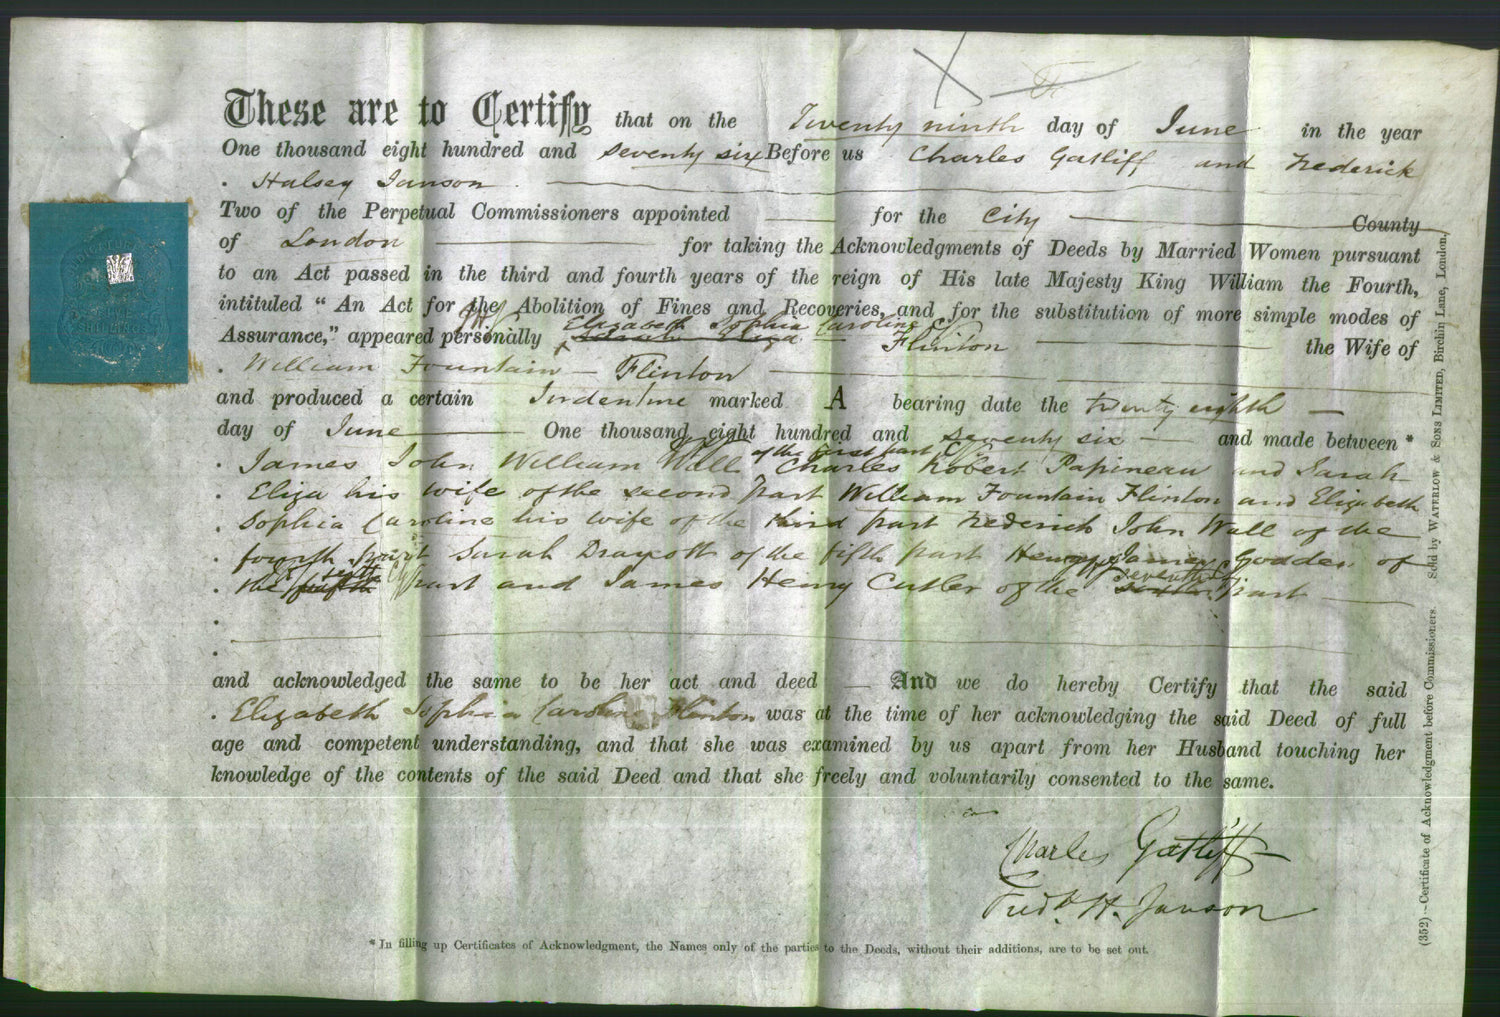 These are to Certify that on the Twenty ninth day of June in the year
One thousand eight hundred and seventy six Before us Charles Gatliff and Frederick
Halsey Janson
Two of the Perpetual Commissioners appointed for the City County
of London for taking the Acknowledgments of Deeds by Married Women pursuant
to an Act passed in the third and fourth years of the reign of His late Majesty King William the Fourth,
intituled “ An Act for the Abolition of Fines and Recoveries, and for the substitution of more simple modes of
Elizabeth Sophia Caroline
Assurance,” appeared personally Flinton the Wife of
William Fountain Flinton
and produced a certain Indenture marked A bearing date the twenty eighth
day of June One thousand eight hundred and seventy six and made between *
of the first part
James John William Wall Charles Robert Papineau and Sarah
Eliza his wife of the second part William Fountain Flinton and Elizabeth
Sophia Caroline his wife of the third part Frederick John Wall of the
fourth part Sarah Draycott of the fifth part Henry James Godden of
sixth seventh
the part and James Henry Cutler of the part
and acknowledged the same to be her act and deed — And we do hereby Certify that the said
Elizabeth Sophia Caroline Flinton was at the time of her acknowledging the said Deed of full
age and competent understanding, and that she was examined by us apart from her Husband touching her
knowledge of the contents of the said Deed and that she freely and voluntarily consented to the same.
Charles Gatliff
Fredk H. Janson
* In filling up Certificates of Acknowledgment, the Names only of the parties to the Deeds, without their additions, are to be set out.
(352)—Certificate of Acknowledgment before Commissioners. Sold by WATERLOW & SONS LIMITED, Birchin Lane, London.
SHILLINGS